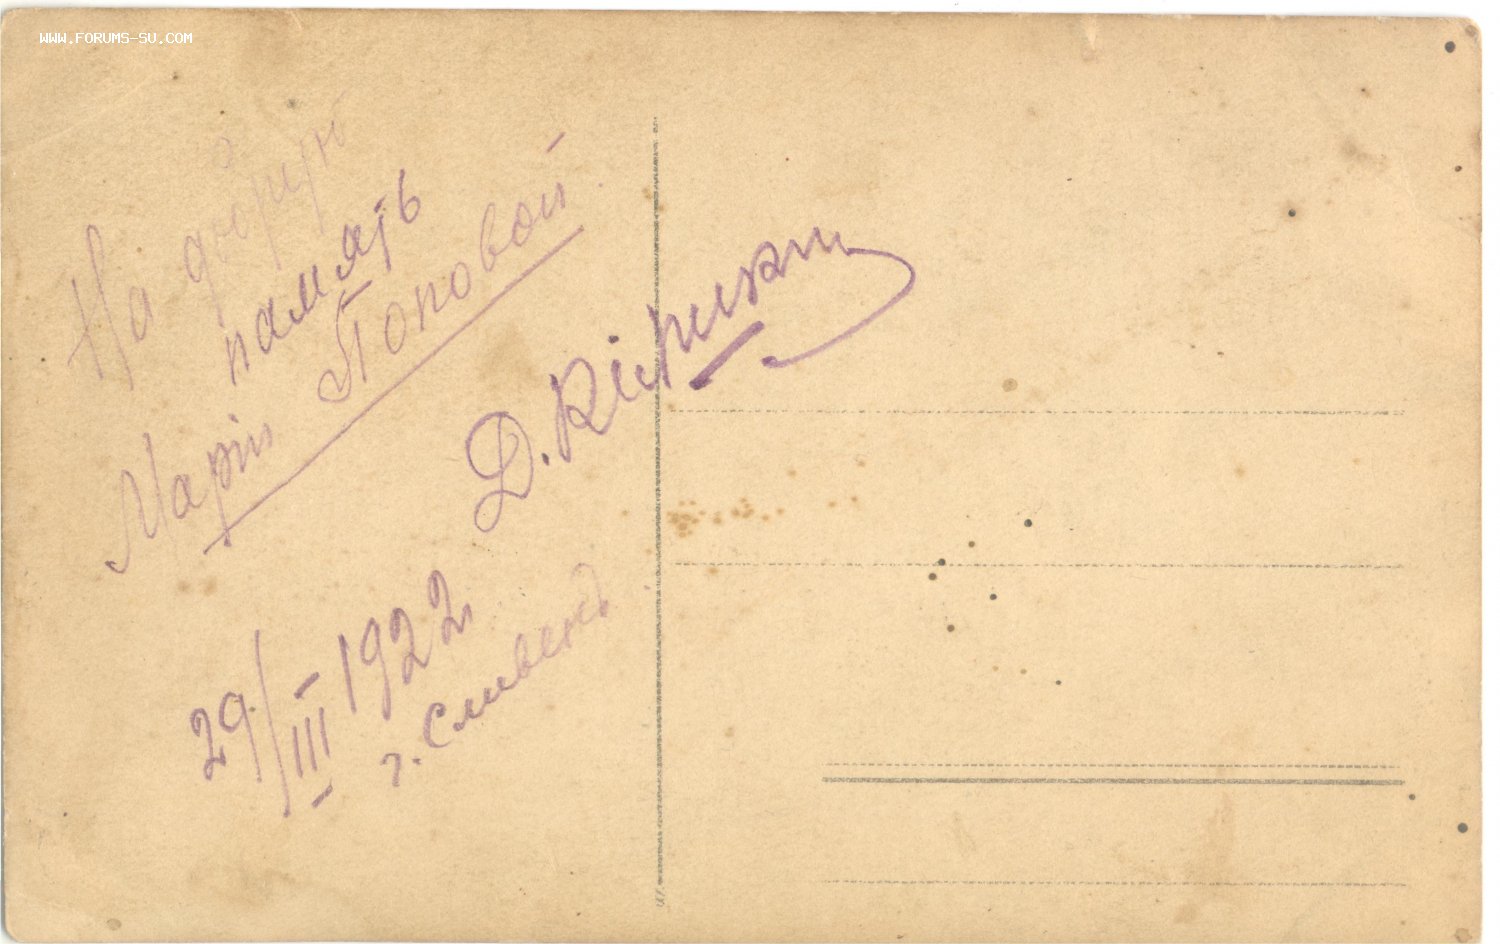 WWW.FORUMS-SU.COM
На добрую
память
Маріи Поповой
Д.
29/III 1922
г. Сливенъ